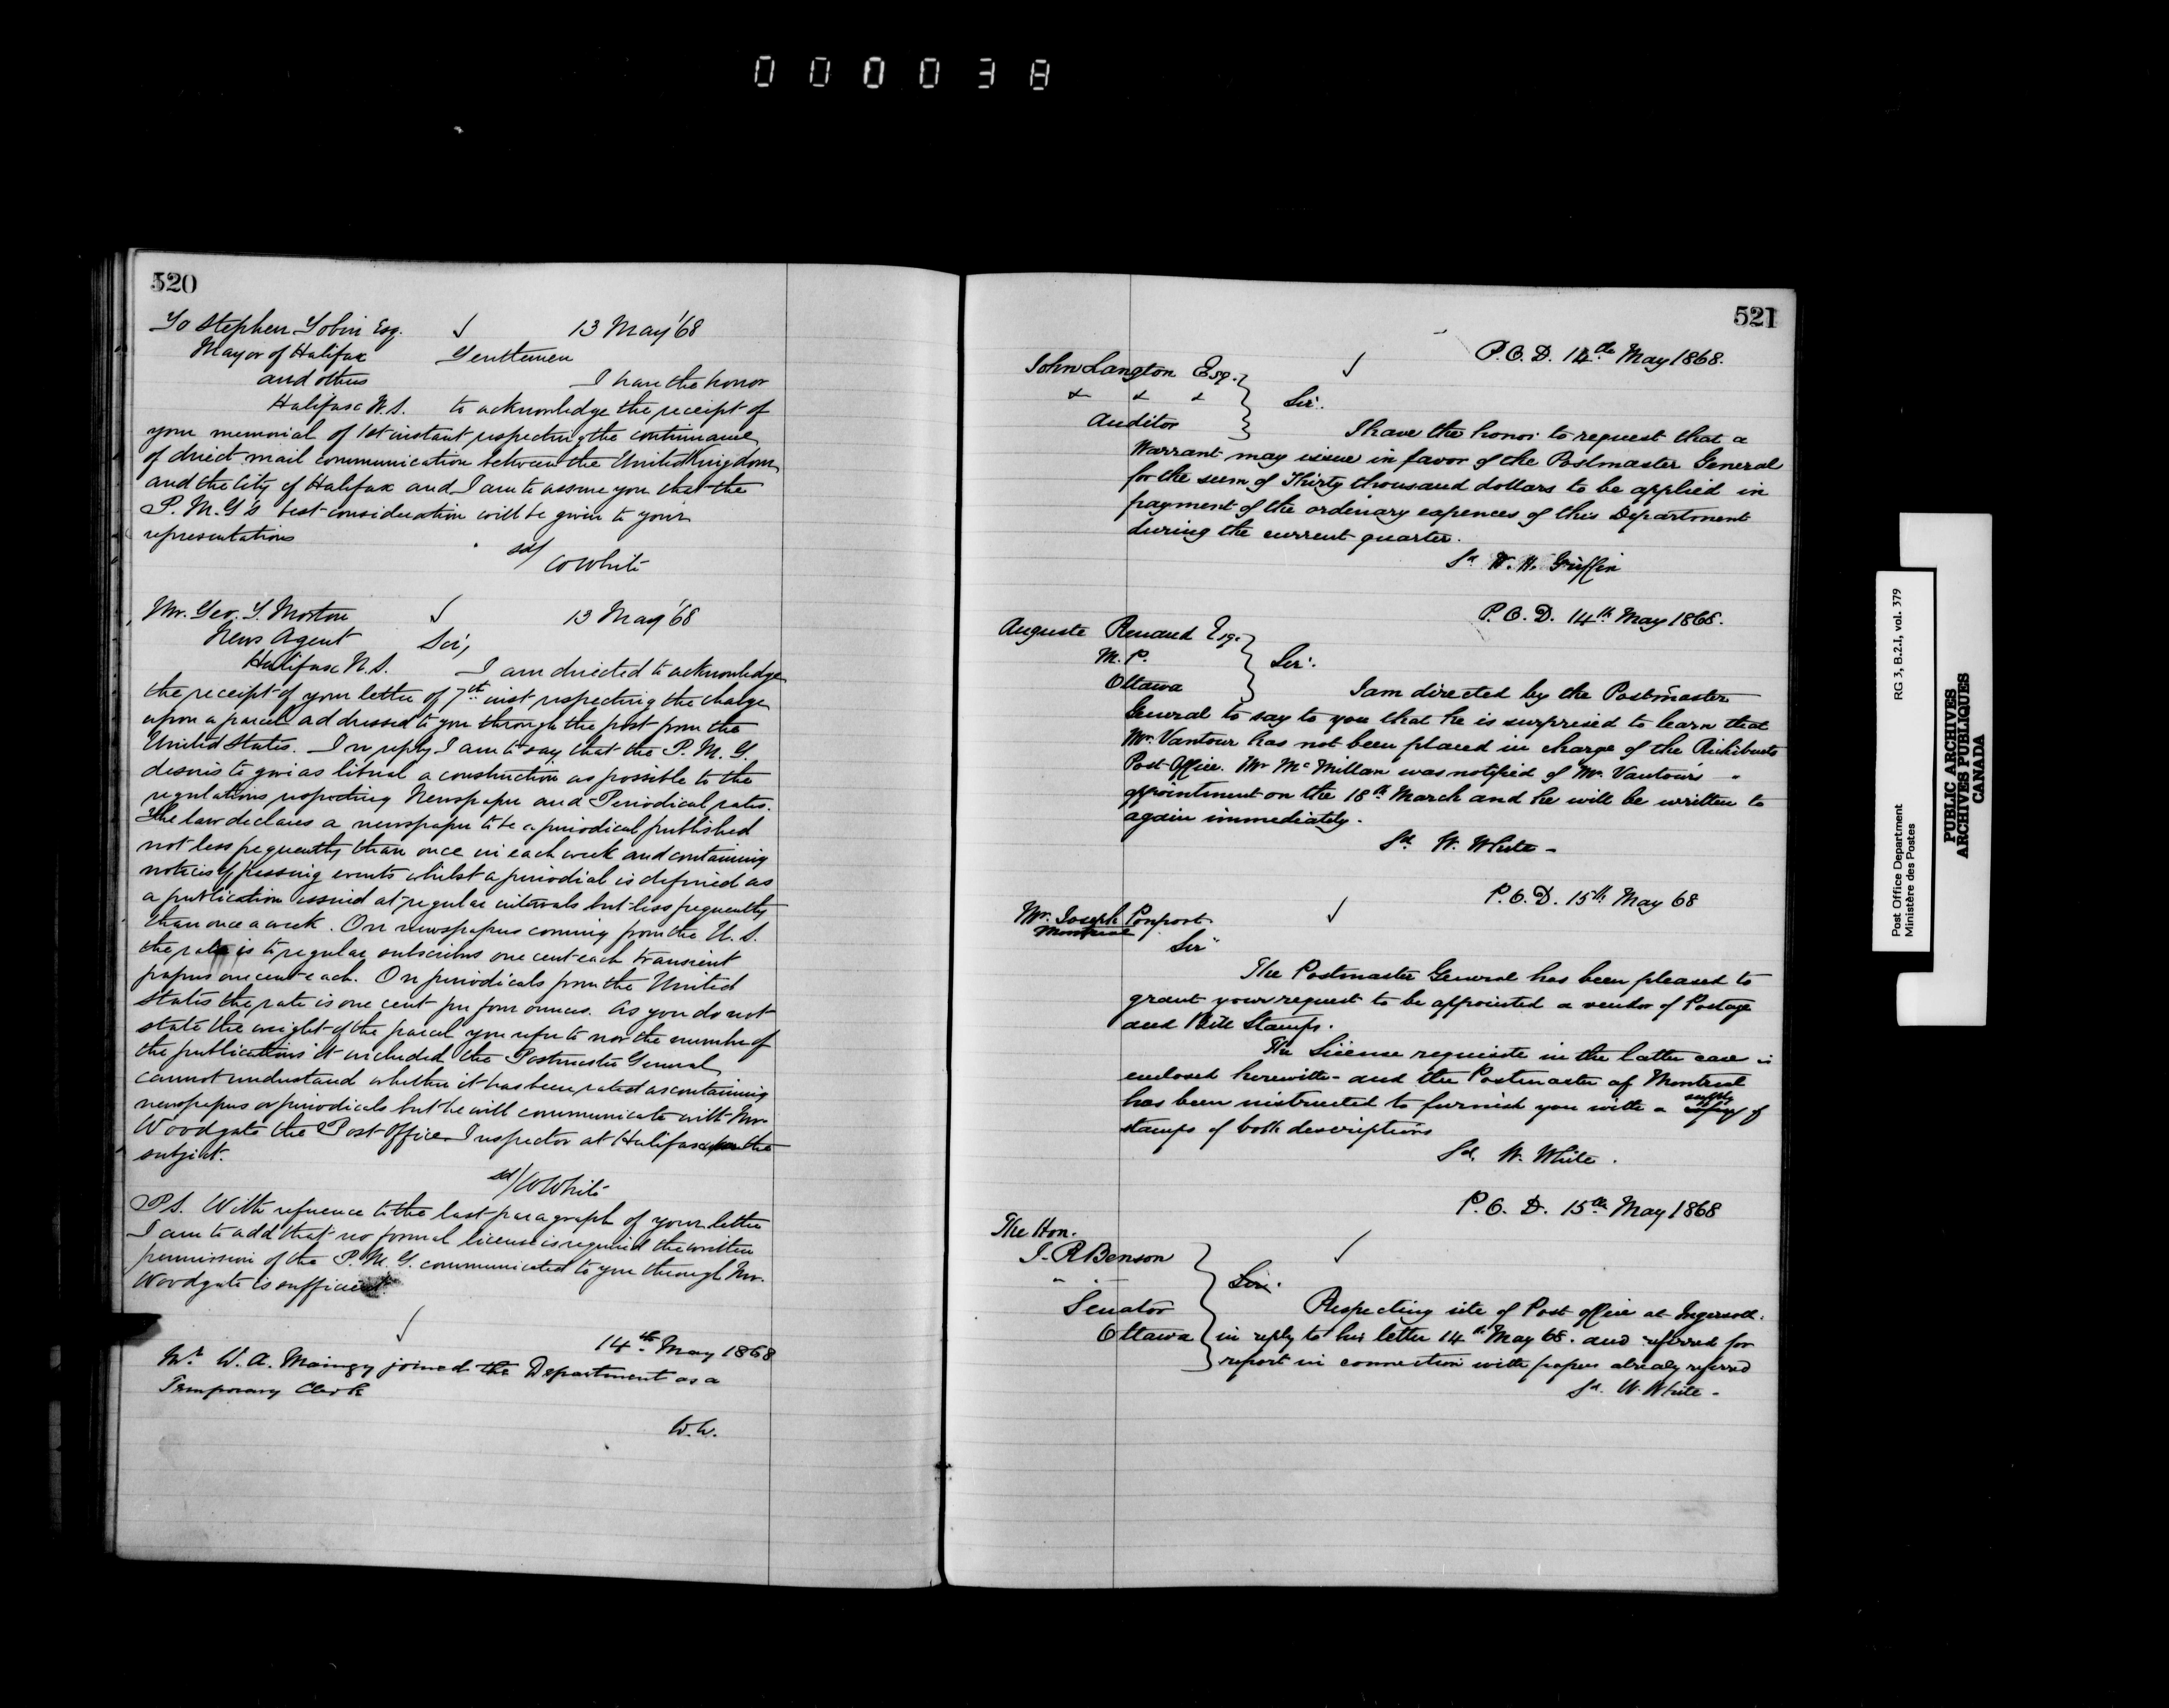 000038
520
To Stephen Tobin Esq. 13 May '68
Mayor of Halifax Gentlemen
and others I have the honor
Halifax N.S. to acknowledge the receipt of
your memorial of 1st instant respecting the continuance
of direct mail communication between the United Kingdom
and the City of Halifax and I am to assure you that the
P.M.G's best consideration will be given to your
representations
sd/ W White
Mr. Geo. T. Morton 13 May '68
News Agent Sir,
Halifax N.S. I am directed to acknowledge
the receipt of your letter of 7th inst respecting the charge
upon a parcel addressed to you through the post from the
United States. In reply I am to say that the P.M.G.
desires to give as liberal a construction as possible to the
regulations respecting Newspaper and Periodical rates.
The law declares a newspaper to be a periodical published
not less frequently than once in each week and containing
notices of passing events whilst a periodical is defined as
a publication issued at regular intervals but less frequently
than once a week. On newspapers coming from the U.S.
the rate is to regular subscribers one cent each transient
papers one cent each. On periodicals from the United
States the rate is one cent per four ounces. As you do not
state the weight of the parcel you refer to nor the number of
the publications it included the Postmaster General
cannot understand whether it has been rated as containing
newspapers or periodicals but he will communicate with Mr.
Woodgate the Post Office Inspector at Halifax upon the
subject.
sd/ W White
P.S. With reference to the last paragraph of your letter
I am to add that no formal license is required the written
permission of the P.M.G. communicated to you through Mr.
Woodgate is sufficient
14th May 1868
Mr. W. A. Maingy joined the Department as a
Temporary Clerk
W.W.
521
P.O.D. 14th May 1868.
John Langton Esq.
& & & Sir.
Auditor I have the honor to request that a
Warrant may issue in favor of the Postmaster General
for the sum of Thirty thousand dollars to be applied in
payment of the ordinary expences of this Department
during the current quarter.
Sd W. H. Griffin
P.O.D. 14th May 1868.
Auguste Renaud Esq.
M.P. Sir.
Ottawa I am directed by the Postmaster
General to say to you that he is surprised to learn that
Mr. Vantour has not been placed in charge of the Richibucto
Post Office. Mr McMillan was notified of Mr. Vantour's
appointment on the 18th March and he will be written to
again immediately.
Sd. W. White -
P.O.D. 15th May 68
Mr. Joseph
Montreal
Sir
The Postmaster General has been pleased to
grant your request to be appointed a vendor of Postage
and Bill Stamps.
The License requisite in the latter case is
enclosed herewith - and the Postmaster of Montreal
has been instructed to furnish you with a supply of
stamps of both descriptions
Sd. W. White.
P.O.D. 15th May 1868
The Hon.
J. R Benson
" " Sir.
Senator Respecting site of Post office at Ingersoll.
Ottawa in reply to his letter 14th May 68. and referred for
report in connection with papers already referred
Sd. W. White -
Post Office Department RG 3, B.2.I, vol. 379
Ministère des Postes
PUBLIC ARCHIVES
ARCHIVES PUBLIQUES
CANADA